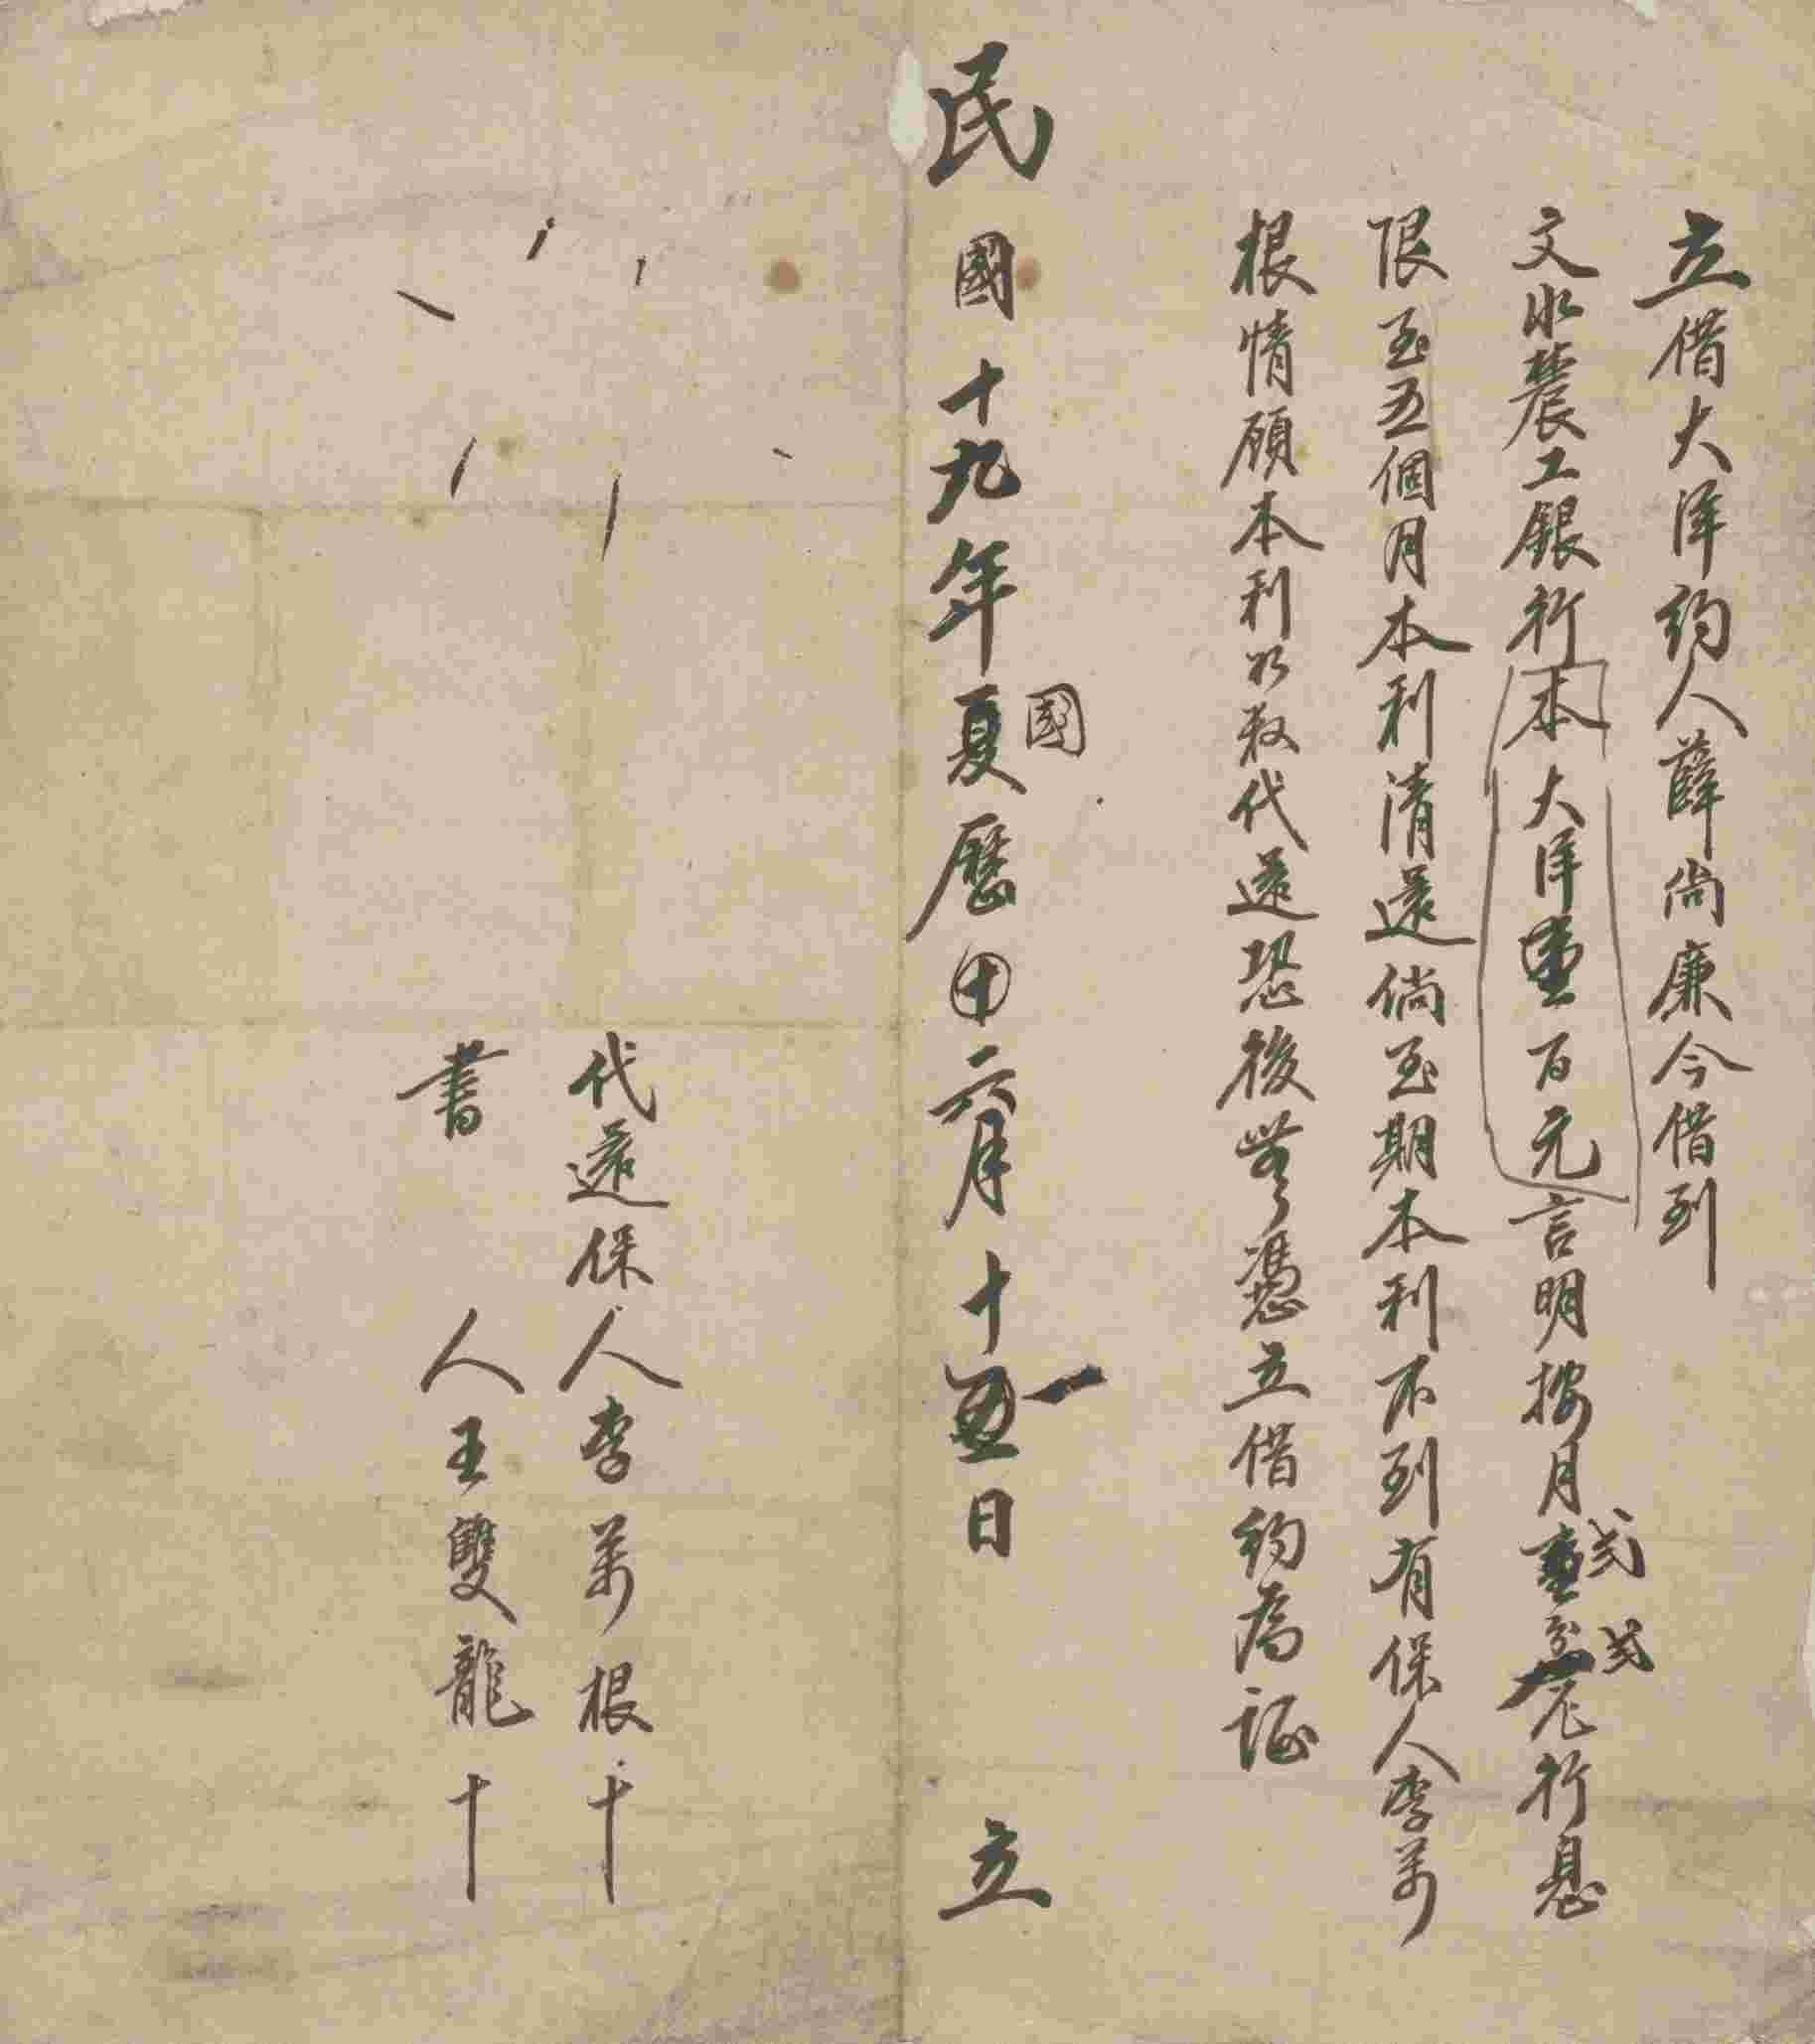 立借大洋約人薛尚廉今借到
文水農工銀行本大洋壹百元言明按月弍分弍行息
限至五個月本利清還倘至期本利不到有保人李萬
根情願本利如數代還恐後無憑立借約為証
民國十九年夏國曆十六月十五一日 立
代還保人李萬根十
書 人王雙龍十